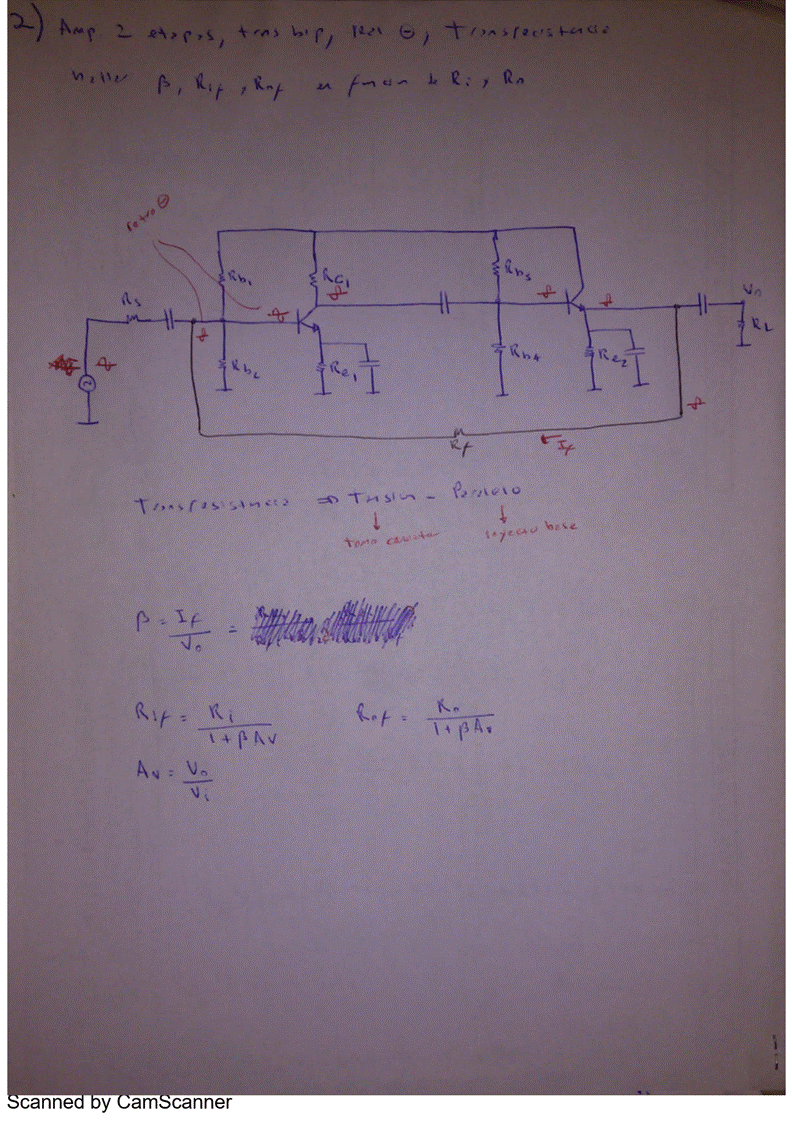 2) Amp 2 etapas, trans bip, Real ⊖, Transresistencia
hallar β, Rif, Rof en funcion de Ri y Ro
retro ⊖
Rb1
RC1
Rb3
Rs
Vo
RL
Rb2
Re1
Rb4
Re2
Rf
If
Transresistencia ⇒ Tension - Paralelo
Tomo
inyecto base
β = If / Vo =
Rif = Ri / 1 + βAv
Rof = Ro / 1 + βAv
Av = Vo / Vi
Scanned by CamScanner